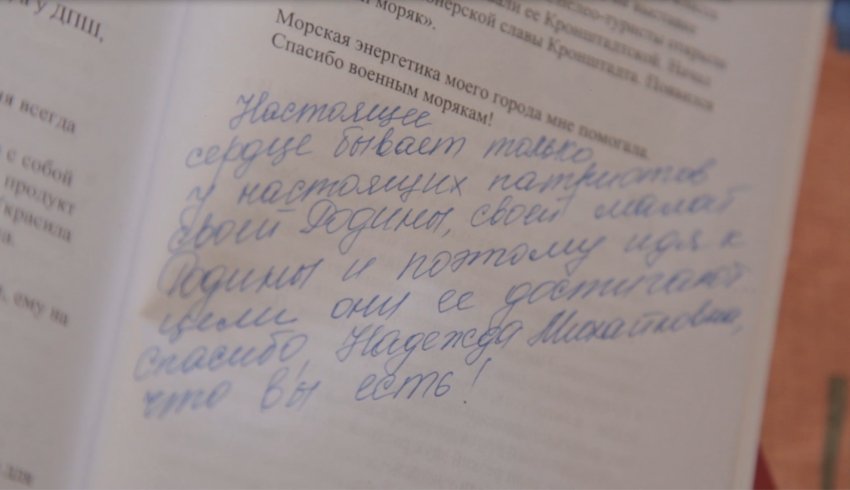 а у ДПШ,
я всегда
с собой
продукт
красила
ему на
для
выставке
туристы открыли
али ее Кронштадтской. Начал
онерской славы Кронштадта. Появился
моряк».
Морская энергетика моего города мне помогала.
Спасибо военным морякам!
Настоящее
сердце бывает только
у настоящих патриотов
своей Родины, своей малой
Родины и поэтому идя к
цели они ее достигают
Спасибо, Надежда Михайловна,
что вы есть!